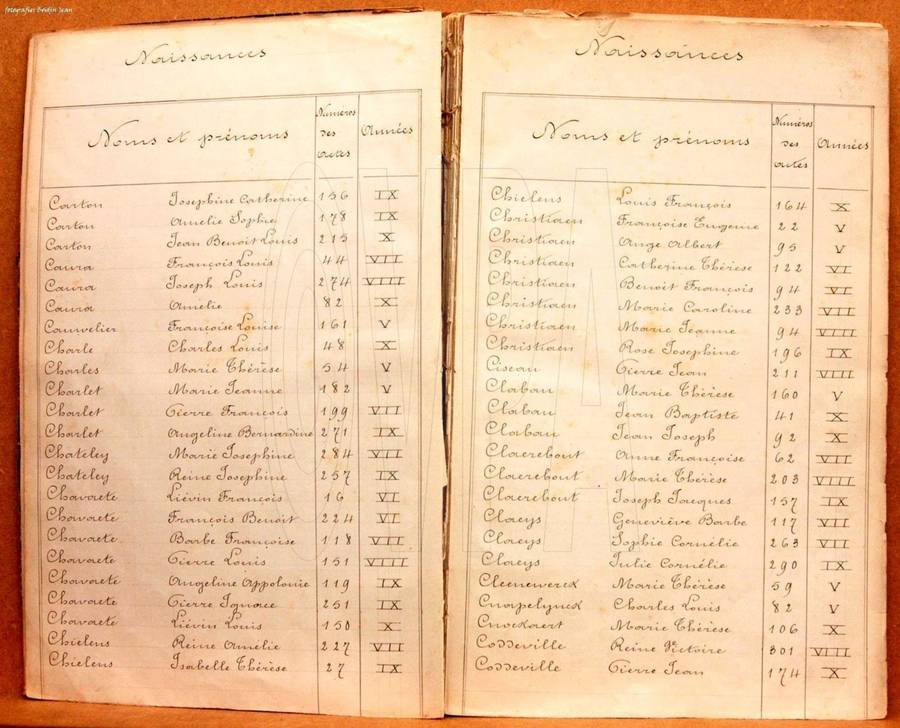 fotografies Beidjin Jean
Naissances
Noms et prénoms Numéros des actes Années
Carton Josephine Catherine 156 IX
Carton Amelie Sophie 178 IX
Carton Jean Benoit Louis 215 X
Caura François Louis 44 VII
Caura Joseph Louis 274 VIII
Caura Amelie 82 X
Cauwelier Françoise Louise 161 V
Charle Charles Louis 48 X
Charles Marie Thérèse 54 V
Charlet Marie Jeanne 182 V
Charlet Pierre François 199 VII
Charlet Angeline Bernardine 271 IX
Chateley Marie Josephine 284 VII
Chateley Reine Josephine 257 IX
Chavaete Liévin François 16 VI
Chavaete François Benoit 224 VI
Chavaete Barbe Françoise 118 VII
Chavaete Pierre Louis 151 VIII
Chavaete Angeline Appolonie 119 IX
Chavaete Pierre Ignace 251 IX
Chavaete Liévin Louis 150 X
Chielens Reine Amélie 227 VII
Chielens Isabelle Thérèse 27 IX
Naissances
Noms et prénoms Numéros des actes Années
Chielens Louis François 164 X
Christiaen Françoise Eugenie 22 V
Christiaen Ange Albert 95 V
Christiaen Catherine Thérèse 122 VI
Christiaen Benoit François 94 VI
Christiaen Marie Caroline 233 VII
Christiaen Marie Jeanne 94 VIII
Christiaen Rose Josephine 196 IX
Ciseau Pierre Jean 211 VIII
Clabau Marie Thérèse 160 V
Clabau Jean Baptiste 41 X
Clabau Jean Joseph 92 X
Claerebout Anne Françoise 62 VII
Claerebout Marie Thérèse 203 VIII
Claerebout Joseph Jacques 157 IX
Claeys Geneviève Barbe 117 VII
Claeys Sophie Cornélie 263 VII
Claeys Julie Cornélie 290 IX
Cleenewerck Marie Thérèse 59 V
Cnapelynck Charles Louis 82 V
Cnockaert Marie Thérèse 106 X
Coddeville Reine Victoire 301 VIII
Coddeville Pierre Jean 174 X